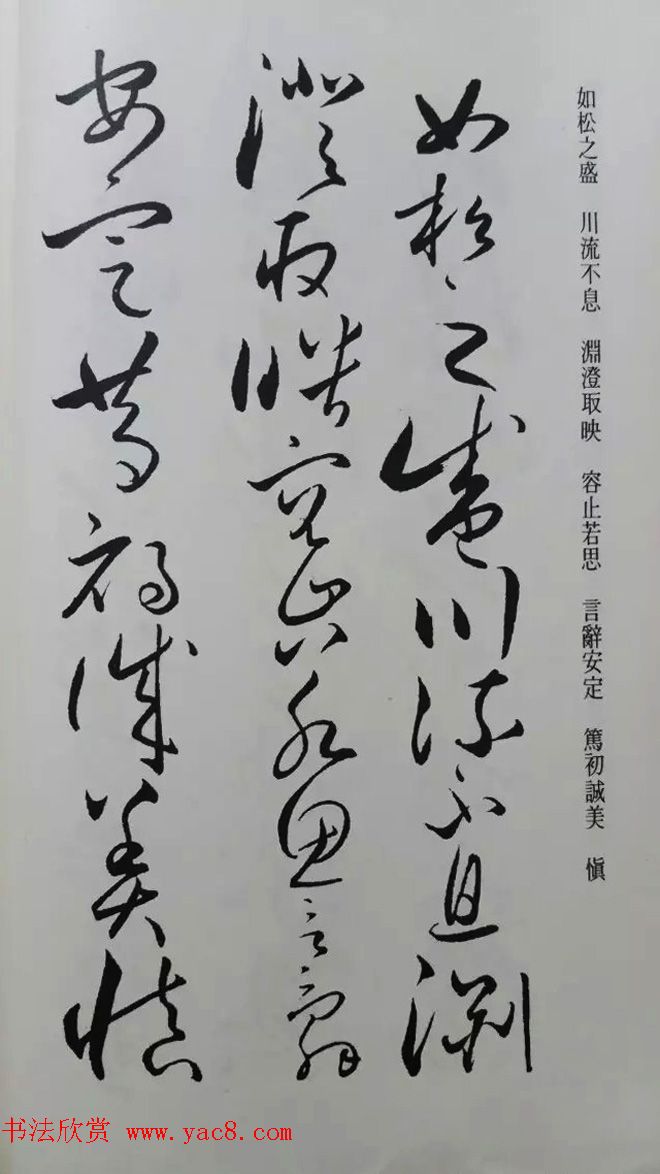 如松之盛　川流不息　淵澄取映　容止若思　言辭安定　篤初誠美　慎
如松之盛川流不息淵
澄取映容止若思言辭
安定篤初誠美慎
书法欣赏 www.yac8.com